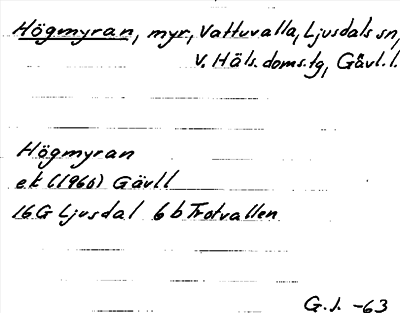 Högmyran, myr, Vattuvalla, Ljusdals sn,
V. Häls. doms.tg, Gävl. l.
Högmyran
ek (1960) Gävll
16G Ljusdal 6b Trotvallen
G. J. -63